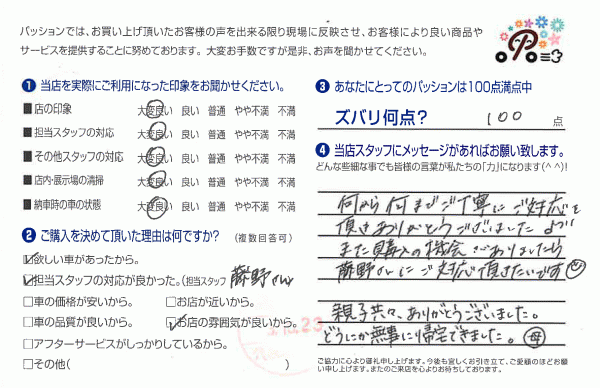 パッションでは、お買い上げ頂いたお客様の声を出来る限り現場に反映させ、お客様により良い商品や
サービスを提供することに努めております。大変お手数ですが是非、お声を聞かせてください。
❶ 当店を実際にご利用になった印象をお聞かせください。
■ 店の印象 大変良い 良い 普通 やや不満 不満
■ 担当スタッフの対応 大変良い 良い 普通 やや不満 不満
■ その他スタッフの対応 大変良い 良い 普通 やや不満 不満
■ 店内・展示場の清掃 大変良い 良い 普通 やや不満 不満
■ 納車時の車の状態 大変良い 良い 普通 やや不満 不満
❷ ご購入を決めて頂いた理由は何ですか? (複数回答可)
☑欲しい車があったから。
☑担当スタッフの対応が良かった。(担当スタッフ 藤野さん)
□車の価格が安いから。 □お店が近いから。
□車の品質が良いから。 ☑お店の雰囲気が良いから。
□アフターサービスがしっかりしているから。
□その他( )
❸ あなたにとってのパッションは100点満点中
ズバリ何点? 100 点
❹ 当店スタッフにメッセージがあればお願い致します。
どんな些細な事でも皆様の言葉が私たちの「力」になります(^^)!
何から何までご丁寧にご対応を
頂きありがとうございました
また購入の機会がありましたら
藤野さんにご対応頂きたいです
親子共々、ありがとうございました。
どうにか無事に帰宅できました。 母
ご協力に心より御礼申し上げます。今後も宜しくお引き立て、ご愛顧のほどお願
い申し上げます。またのご来店を心よりお待ちしております。